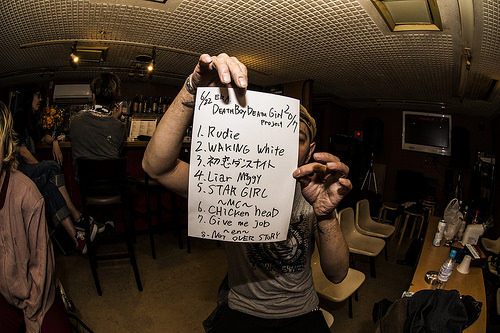 6/22
DEATH Boy DEATH Girl 2017
PROJECT
1. Rudie
2. WAKING White
3. 初恋ダンスナイト
4. Liar Miggy
5. STAR GIRL
~MC~
6. CHICKEN heaD
7. Give me job
~en~
8. Not OVER STORY